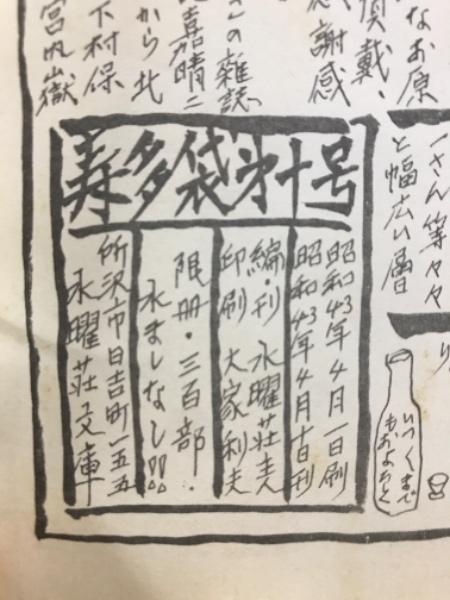 なお原
頂戴、
謝感
この雑誌
嘉晴ニ
から北
下村保
宮内山獄
一さん等々々
と幅広い層
り
寿多袋第十号
昭和43年4月一日刷
昭和43年4月十日刊
編・刊 水曜荘主人
印刷 大家利夫
限册・三百部・
水ましなし!!!
所沢市日吉町一五五
水曜荘文庫
いつくまで
もおよおと